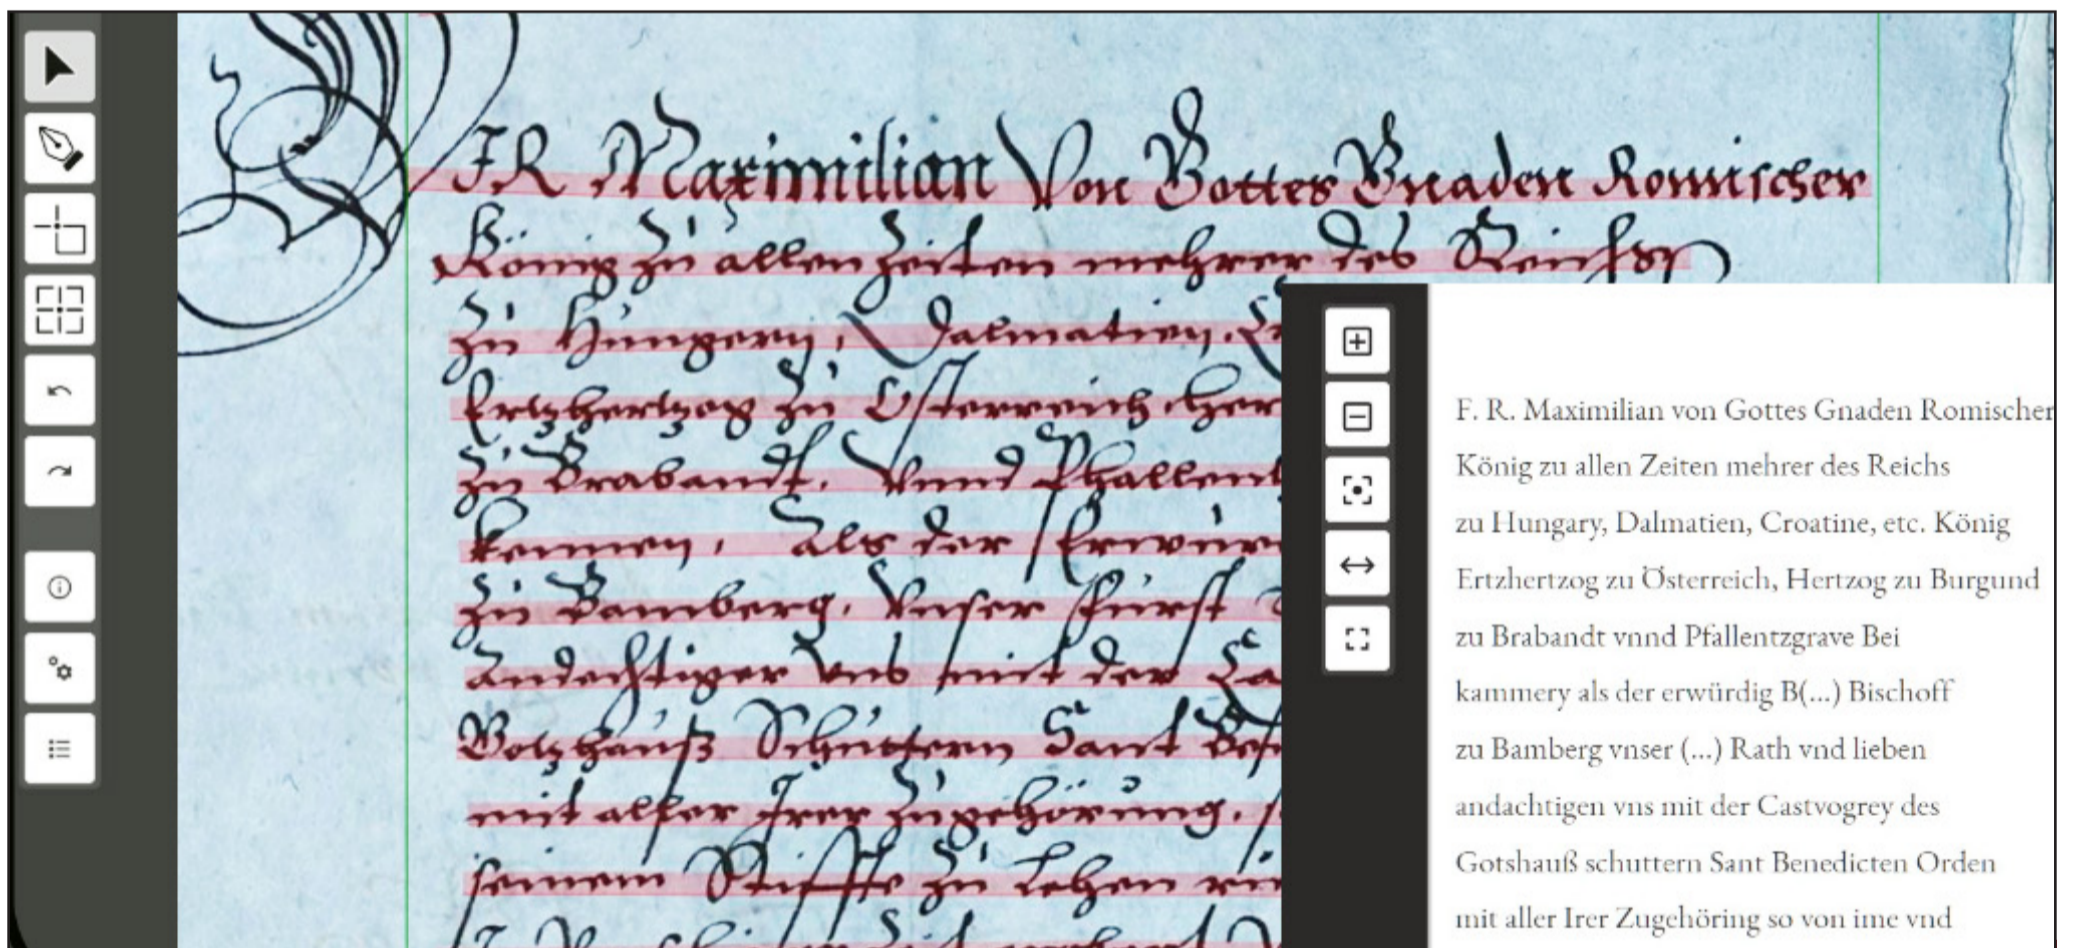 JR Maximilian Von Gottes Gnaden Romischer
König Zu allen Zeiten mehrer des Reichs
Zu Hungern, Dalmatien,
Ertzhertzog Zu Osterreich, Her
Zu Brabandt, Vnnd Phallent
kennen, Als der Erwür
Zu Bamberg, Vnser Fürst
Andechtiger Vns mit der Ca
Gotzhauß Schuttern Sant
mit aller Irer Zugehörung,
seinem Stiffte Zu Lehen
F. R. Maximilian von Gottes Gnaden Romischer
König zu allen Zeiten mehrer des Reichs
zu Hungary, Dalmatien, Croatine, etc. König
Ertzhertzog zu Österreich, Hertzog zu Burgund
zu Brabandt vnnd Pfallentzgrave Bei
kammery als der erwürdig B(...) Bischoff
zu Bamberg vnser (...) Rath vnd lieben
andachtigen vns mit der Castvogrey des
Gotshauß schuttern Sant Benedicten Orden
mit aller Irer Zugehöring so von ime vnd